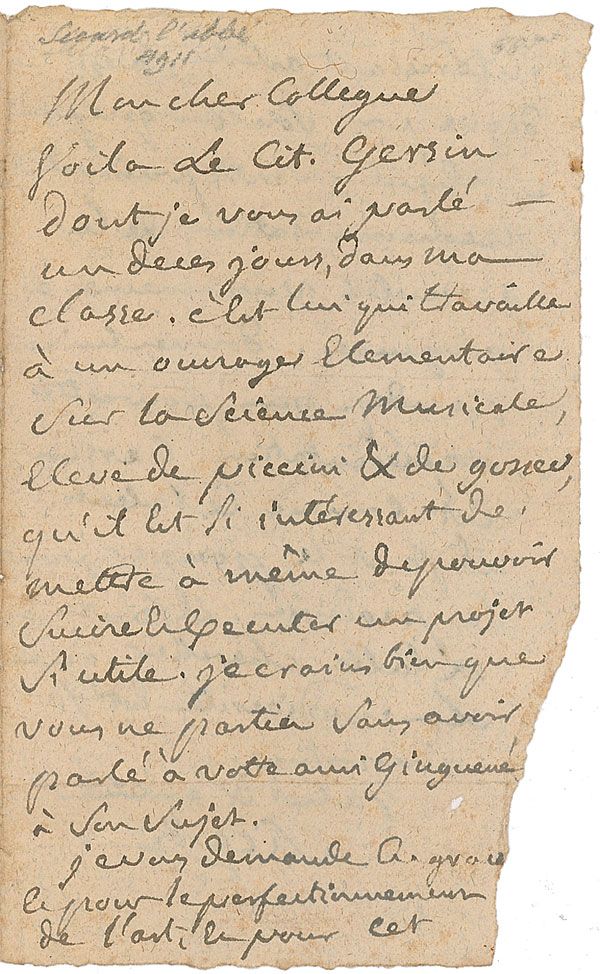 Sicard l'abbé
Mon cher Collegue
Voila Le Cit. Gersin
dont je vous ai parlé —
un de ces jours, dans ma
classe. c'est lui qui travaille
à un ouvrage Elementaire
sur la Science Musicale,
Eleve de piccini & de gossec,
qu'il Est si intéressant de
mettre à même de pouvoir
suivre & Executer un projet
si utile. je crains bien que
vous ne partiez sans avoir
parlé à votre ami Ginguené
à son sujet.
je vous demande grace
Et pour le perfectionnement
de l'art, Et pour cet